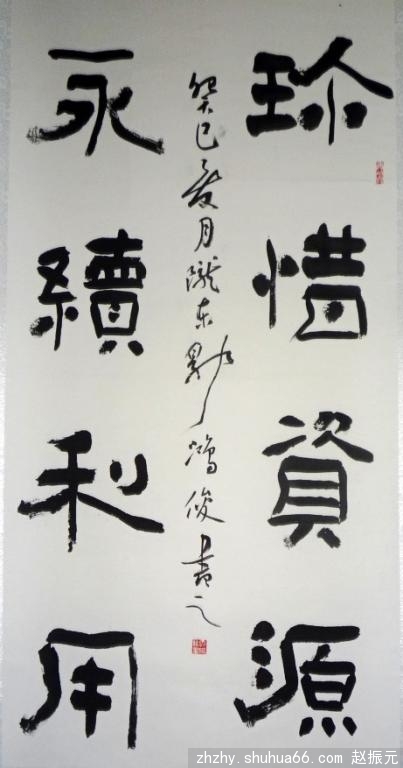 珍惜資源
永續利用
癸巳夏月隴东郭鴻俊書之
zhzhy.shuhua66.com 赵振元